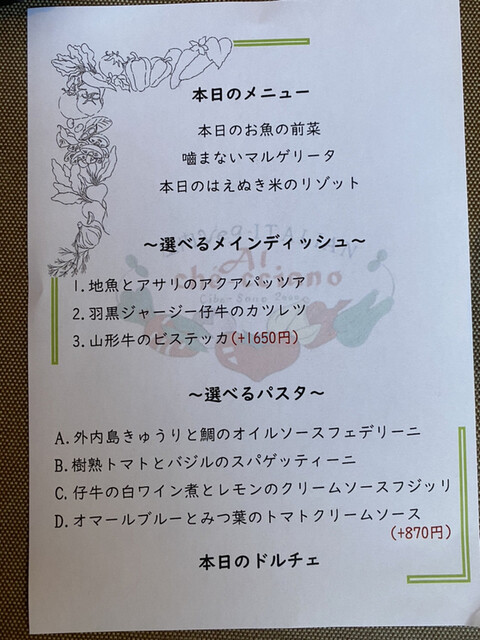 本日のメニュー
本日のお魚の前菜
噛まないマルゲリータ
本日のはえぬき米のリゾット
～選べるメインディッシュ～
1. 地魚とアサリのアクアパッツア
2. 羽黒ジャージー仔牛のカツレツ
3. 山形牛のビステッカ(+1650円)
～選べるパスタ～
A. 外内島きゅうりと鯛のオイルソースフェデリーニ
B. 樹熟トマトとバジルのスパゲッティーニ
C. 仔牛の白ワイン煮とレモンのクリームソースフジッリ
D. オマールブルーとみつ葉のトマトクリームソース
(+870円)
本日のドルチェ